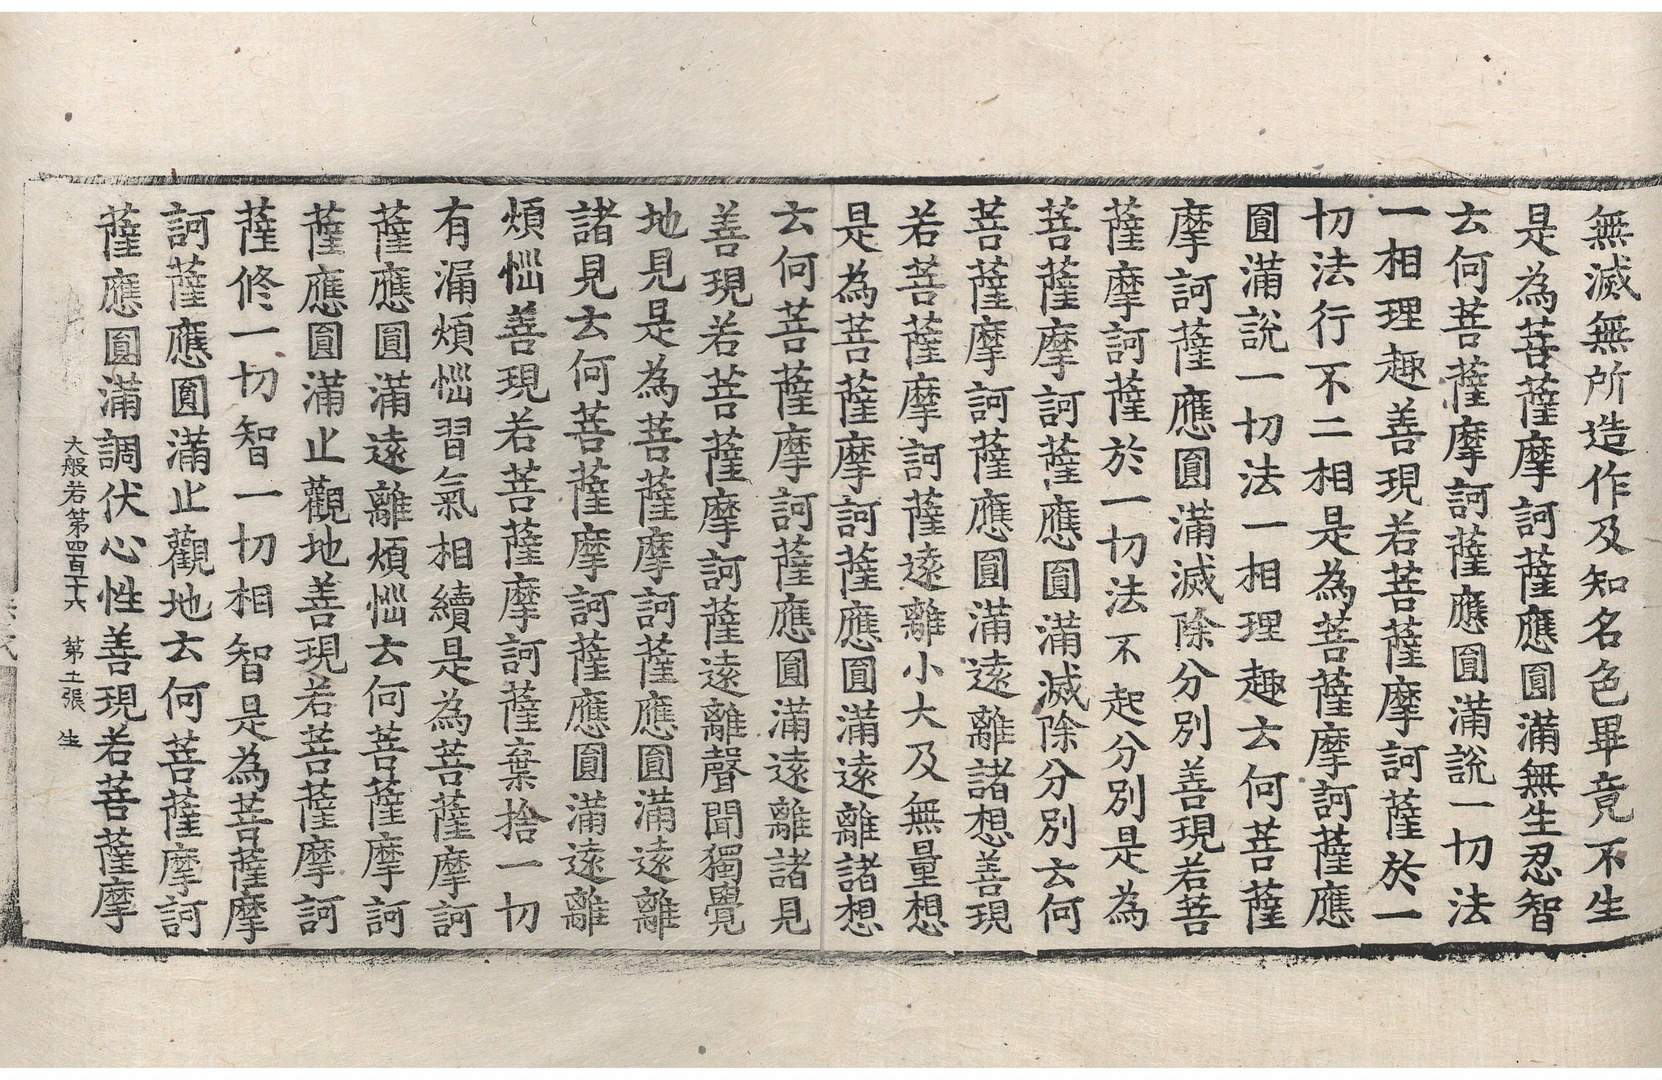 無滅無所造作及知名色畢竟不生
是為菩薩摩訶薩應圓滿無生忍智
云何菩薩摩訶薩應圓滿說一切法
一相理趣善現若菩薩摩訶薩於一
切法行不二相是為菩薩摩訶薩應
圓滿說一切法一相理趣云何菩薩
摩訶薩應圓滿滅除分別善現若菩
薩摩訶薩於一切法不起分別是為
菩薩摩訶薩應圓滿滅除分別云何
菩薩摩訶薩應圓滿遠離諸想善現
若菩薩摩訶薩遠離小大及無量想
是為菩薩摩訶薩應圓滿遠離諸想
云何菩薩摩訶薩應圓滿遠離諸見
善現若菩薩摩訶薩遠離聲聞獨覺
地見是為菩薩摩訶薩應圓滿遠離
諸見云何菩薩摩訶薩應圓滿遠離
煩惱善現若菩薩摩訶薩棄捨一切
有漏煩惱習氣相續是為菩薩摩訶
薩應圓滿遠離煩惱云何菩薩摩訶
薩應圓滿止觀地善現若菩薩摩訶
薩修一切智一切相智是為菩薩摩
訶薩應圓滿止觀地云何菩薩摩訶
薩應圓滿調伏心性善現若菩薩摩
大般若第四百十六 第十一張 生